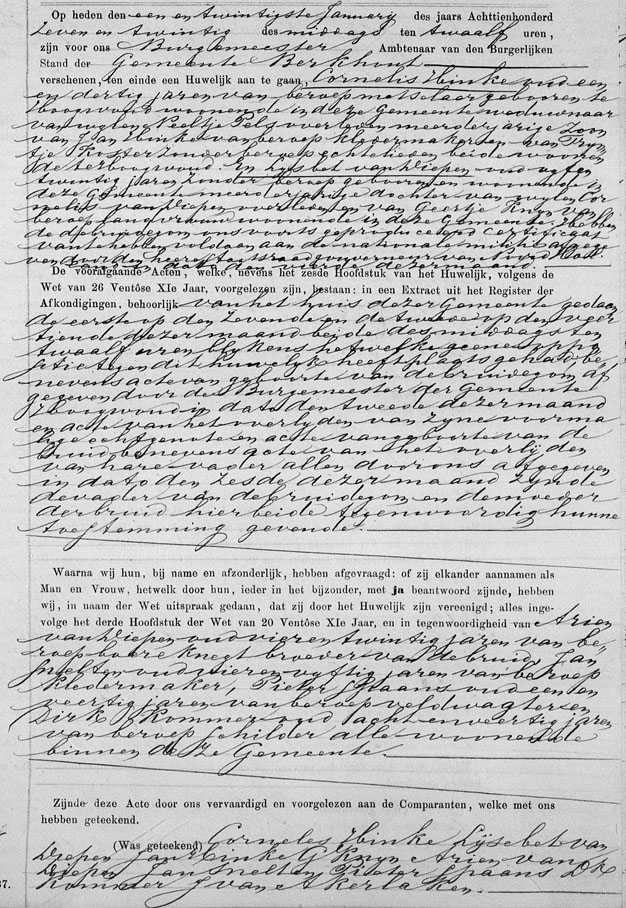 Op heden een en twintigste January des jaars Achttienhonderd
Zeven en twintig des middags ten twaalf uren,
zijn voor ons Burgemeester Ambtenaar van den Burgerlijken
Stand der Gemeente Berkhout
verschenen, ten einde een Huwelijk aan te gaan, Cornelis Hinke oud een
en dertig jaren van beroep metselaar gebooren te
Hoogwoud woonende in deze Gemeente weduwnaar
van wylen Neeltje Pels voorts een meerderjarige zoon
van Jan Hinke van beroep kledermaker en van Tryn
tje Koster zonder beroep echtelieden beide woonen
de te Hoogwoud. En Lysbet van Diepen oud vyf en
twintig jaren zonder beroep gebooren en woonende in
deze Gemeente meerderjarige dochter van wylen Cor
nelis van Diepen overleden en van Geertje Knyn van
beroep landvrouw woonende in deze Gemeente hebben
de de bruidegom ons voorts geproduceerd certificaat
van te hebben voldaan aan de nationale militie afgege
ven door den heer Staatsraad gouverneur van Noord Hol
land in dato den vierde dezer maand.
De voorafgaande Acten, welke, nevens het zesde Hoofdstuk van het Huwelijk, volgens de
Wet van 26 Ventôse XIe Jaar, voorgelezen zijn, bestaan: in een Extract uit het Register der
Afkondigingen, behoorlijk van het huis dezer Gemeente gedaan
de eerste op den Zevende en de tweede op den veer
tiende dezer maand beide des middags ten
twaalf uren blykens hetwelke geene oppo
sitie tegen dit huwelyk heeft plaats gehad be
nevens acte van geboorte van de bruidegom af
gegeven door de Burgemeester der Gemeente
Hoogwoud in dato den tweede dezer maand
en acte van het overlyden van zyne voorma
lige echtgenote en acte van geboorte van de
bruid benevens acte van het overlijden
van hare vader allen door ons afgegeven
in dato den zesde dezer maand zynde
de vader van de bruidegom en de moeder
der bruid hier beide tegenwoordig hunne
toestemming gevende.
Waarna wij hun, bij name en afzonderlijk, hebben afgevraagd: of zij elkander aannamen als
Man en Vrouw, hetwelk door hun, ieder in het bijzonder, met ja beantwoord zijnde, hebben
wij, in naam der Wet uitspraak gedaan, dat zij door het Huwelijk zijn vereenigd; alles inge-
volge het derde Hoofdstuk der Wet van 20 Ventôse XIe Jaar, en in tegenwoordigheid van Arien
van Diepen oud vier en twintig jaren van be-
roep boere knegt broeder van de bruid, Jan
Snelten oud vier en vyftig jaren van beroep
kledermaker, Pieter Spaans oud een en
veertig jaren van beroep veldwagter en
Dirk Kommer oud acht en veertig jaren
van beroep schilder alle woonende
binnen deze Gemeente.
Zijnde deze Acte door ons vervaardigd en voorgelezen aan de Comparanten, welke met ons
hebben geteekend.
(Was geteekend) Corneles Hinke Lysebet van
Diepen Jan Hinke G Knyn Arien van
Diepen Jan Snelten Pieter Spaans Dk
Kommer J van Akerlaken.
37.